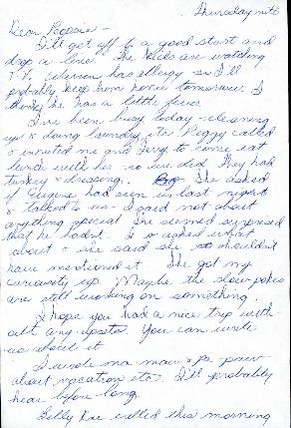 Thursday nite
Dear Popsie -
I'll get off to a good start and
drop a line. The kids are watching
T.V. Warren has allergy so I'll
probably keep him home tomorrow. I
think he has a little fever.
I've been busy today cleaning
up & doing laundry etc. Peggy called
& invited me and to come eat
lunch with her so we did. They had
turkey & dressing. She asked
if Eugene had seen us last night
& talked to us - I said not about
anything special. She seemed surprised
that he hadn't. I asked what
about & she said she shouldn't
have mentioned it. She got my
curiosity up. Maybe the slow pokes
are still working on something.
I hope you had a nice trip with-
out any upsets. You can write
us about it.
I wrote ma maw & pa paw
about vacation etc. I'll probably
hear before long.
Billy called this morning